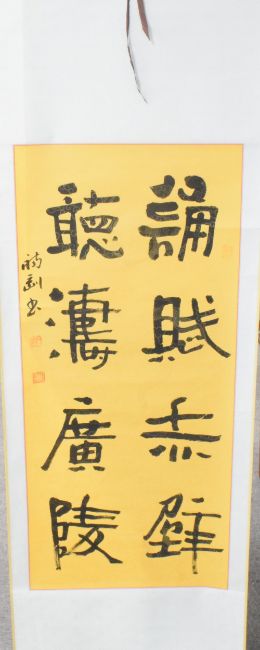 誦賦赤壁
聽濤廣陵
劍書